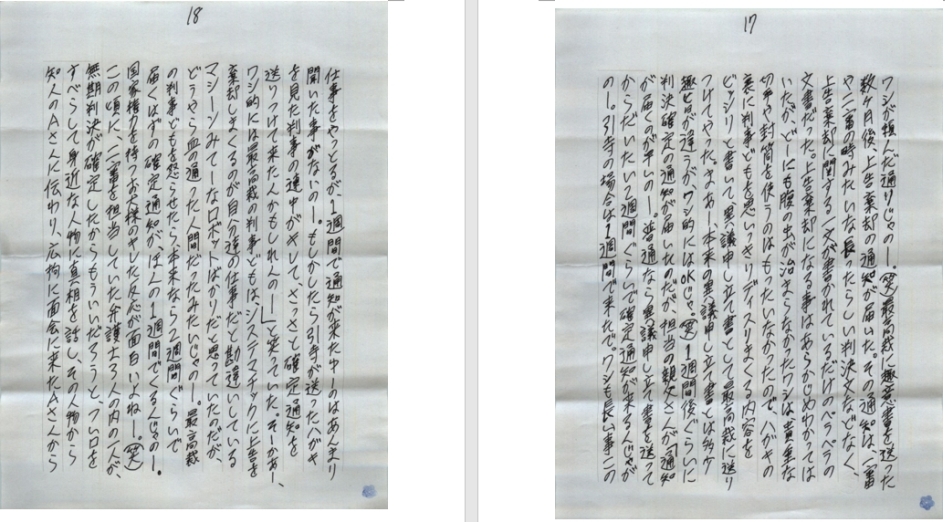 17
ワシが積んだ通りじゃのー。(笑)最高裁に趣意書を送った
数ヶ月後、上告棄却の通知が届いた。その通知は、一審
や二審の時みたいな長ったらしい判決文などなく、
上告棄却に関する一文が書かれているだけのペラペラの
文書だった。上告棄却になる事はあらかじめわかっては
いたが、どーにも腹の虫が治まらなかったワシは、貴重な
切手や封筒を使うのはもったいなかったので、ハガキの
裏に判事どもを思いっきりディスりまくる内容を
ビッシリと書いて、異議申し立て書として最高裁に送り
つけてやった。まあー本来の異議申し立て書とは多少
趣旨が違うが、ワシ的にはOKじゃ。(笑)1週間後ぐらいに
判決確定の通知が届いたのだが、担当の親父さんが「通知
が届くのが早いのー。普通なら異議申し立て書を送って
からだいたい2週間ぐらいで確定通知が来るんじゃが
のー。引寺の場合は1週間で来たで。ワシも長い事この
18
仕事をやっとるが、1週間で通知が来たキーのはあんまり
聞いた事がないのー。もしかしたら引寺が送ったハガキ
を見た判事の連中がキレて、さっさと確定通知を
送りつけて来たんかもしれんのー」と笑っていた。そーかあー、
ワシ的には最高裁の判事どもは、システマチックに上告を
棄却しまくるのが自分達の仕事だと勘違いしている
マシーンみてーなロボットばかりだと思っていたのだが、
どうやら血の通った人間だったみたいじゃのー。最高裁
の判事どもを怒らせたら、本来なら2週間ぐらいで
届くはずの確定通知が、ほんの1週間でくるんじゃのー。
国家権力を持つお犬様のヤレした反応が面白いよねー。(笑)
この頃に、二審を担当していた弁護士3人の内の一人が、
無期判決が確定したからもういいだろうと、つい口を
すべらして身近な人物に真相を話し、その人物から
知人のAさんに伝わり、広拘に面会に来たAさんから